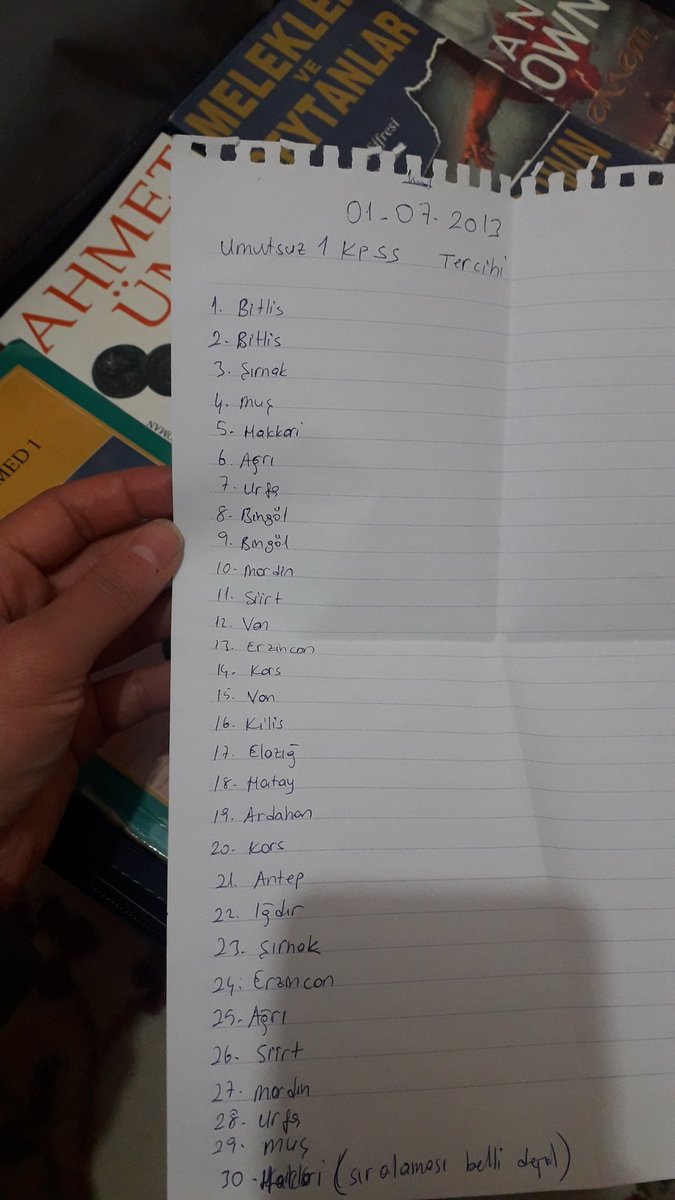 MELEKLE
VE
EYTANLAR
AN
OWN
ifresi
AHMET
ÜM
ROMAN
MED 1
01-07-2013
Umutsuz 1 KPSS Tercihi
1. Bitlis
2. Bitlis
3. Şırnak
4. Muş
5. Hakkari
6. Ağrı
7. Urfa
8. Bingöl
9. Bingöl
10. Mardin
11. Siirt
12. Van
13. Erzincan
14. Kars
15. Van
16. Kilis
17. Elazığ
18. Hatay
19. Ardahan
20. Kars
21. Antep
22. Iğdır
23. Şırnak
24. Erzincan
25. Ağrı
26. Siirt
27. Mardin
28. Urfa
29. Muş
30. Hakkari (sıralaması belli değil)